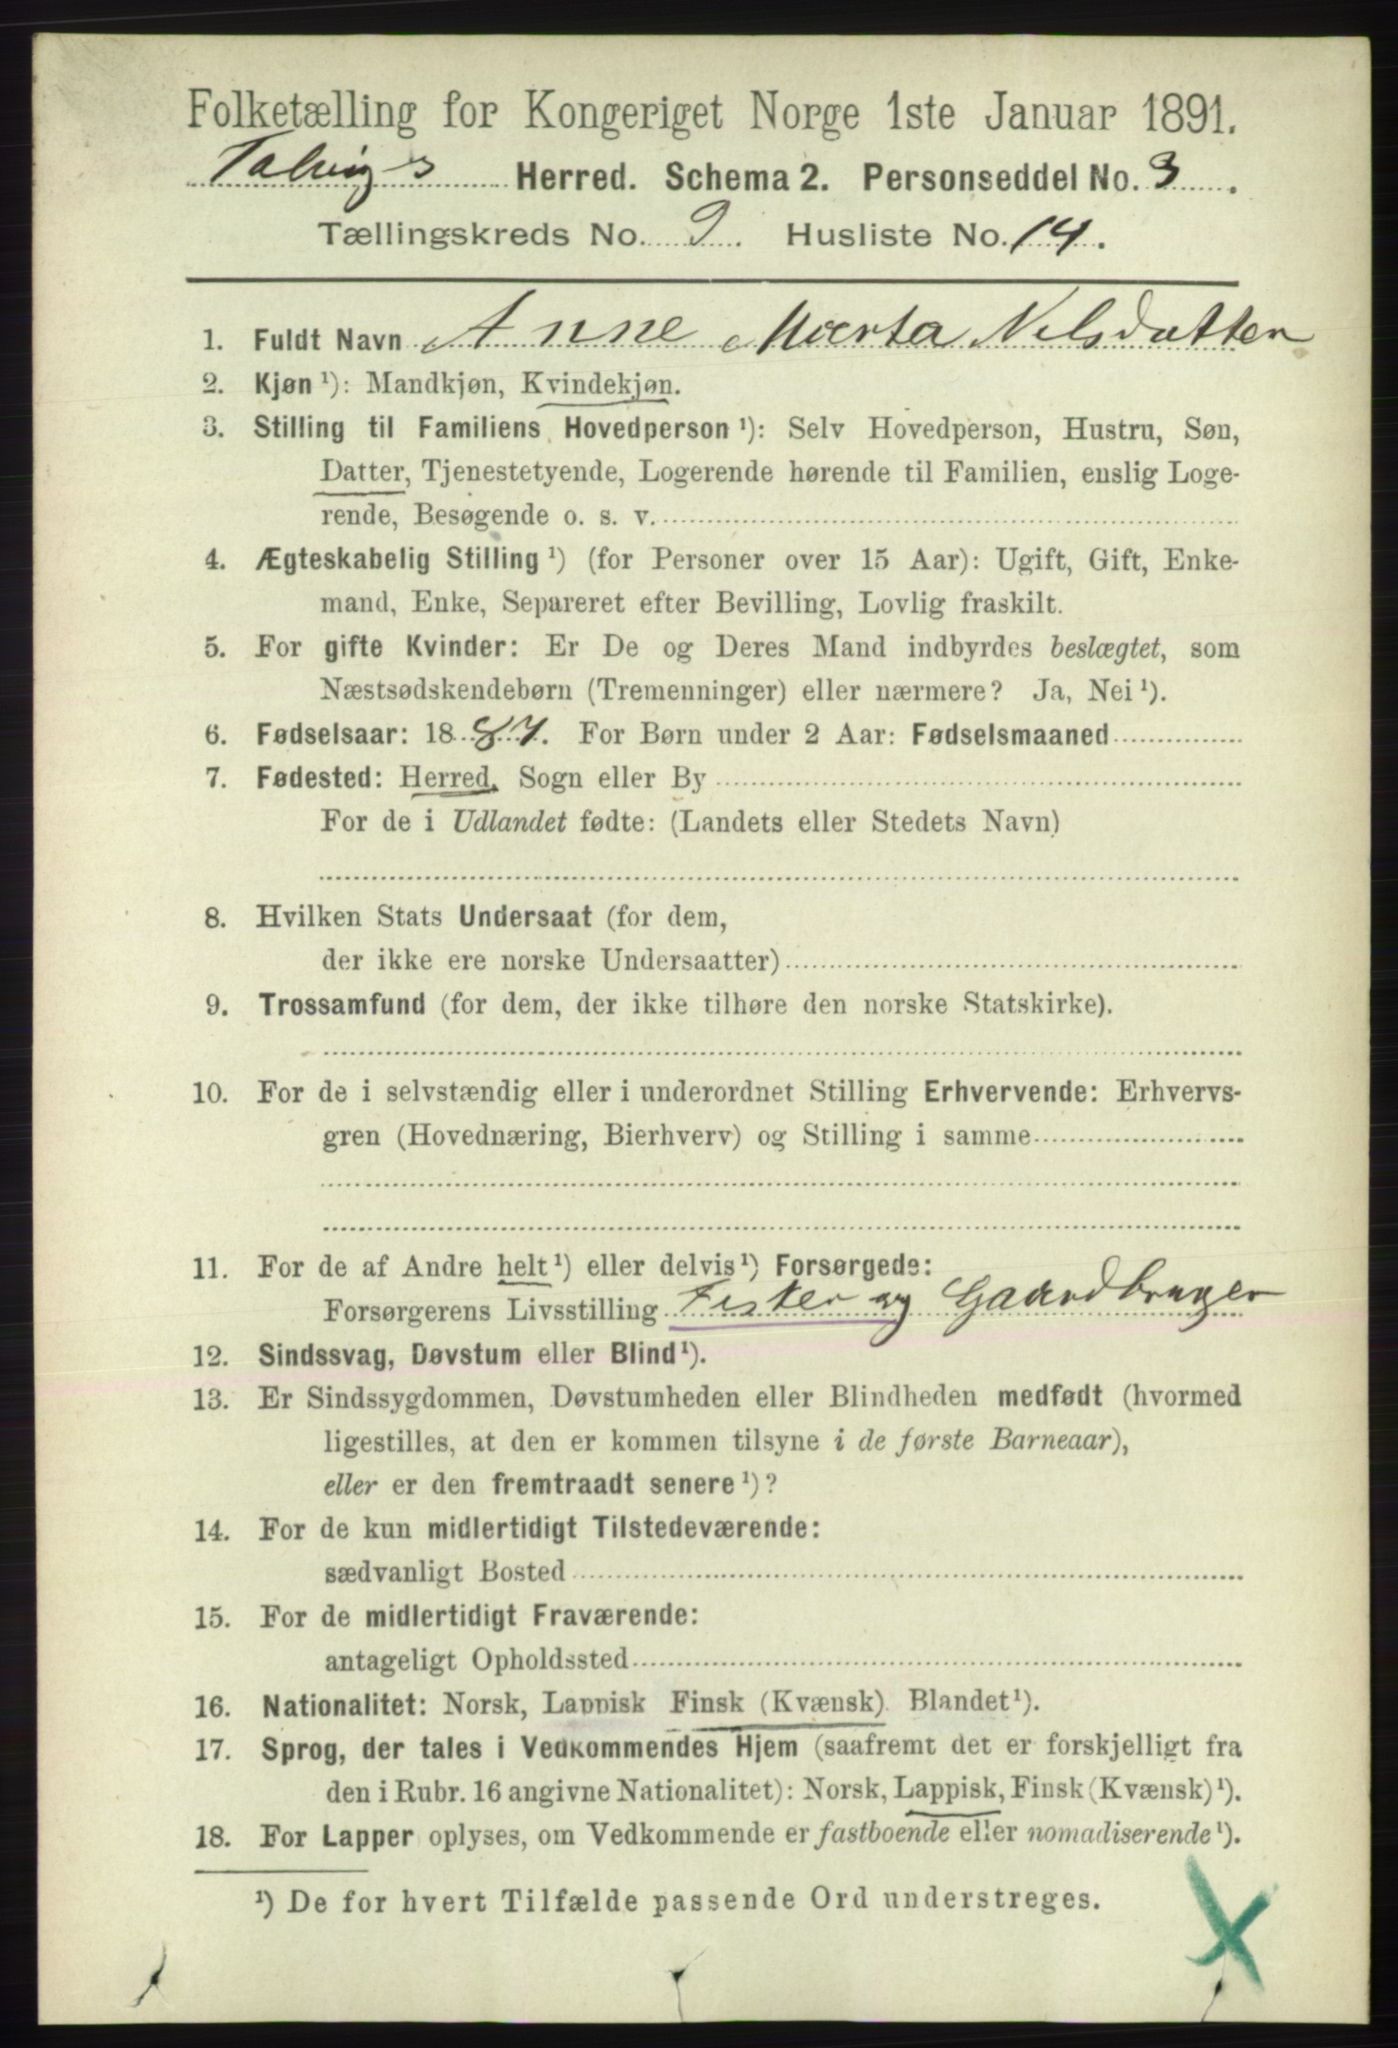 Folketælling for Kongeriget Norge 1ste Januar 1891.
Talvigs Herred. Schema 2. Personseddel No. 3.
Tællingskreds No. 9. Husliste No. 14.
1. Fuldt Navn Anne Marta Nilsdatter
2. Kjøn ¹): Mandkjøn, Kvindekjøn.
3. Stilling til Familiens Hovedperson ¹): Selv Hovedperson, Hustru, Søn,
Datter, Tjenestetyende, Logerende hørende til Familien, enslig Loge-
rende, Besøgende o. s. v.
4. Ægteskabelig Stilling ¹) (for Personer over 15 Aar): Ugift, Gift, Enke-
mand, Enke, Separeret efter Bevilling, Lovlig fraskilt.
5. For gifte Kvinder: Er De og Deres Mand indbyrdes beslægtet, som
Næstsødskendebørn (Tremenninger) eller nærmere? Ja, Nei ¹).
6. Fødselsaar: 1887. For Børn under 2 Aar: Fødselsmaaned
7. Fødested: Herred, Sogn eller By
For de i Udlandet fødte: (Landets eller Stedets Navn)
8. Hvilken Stats Undersaat (for dem,
der ikke ere norske Undersaatter)
9. Trossamfund (for dem, der ikke tilhøre den norske Statskirke).
10. For de i selvstændig eller i underordnet Stilling Erhvervende: Erhvervs-
gren (Hovednæring, Bierhverv) og Stilling i samme
11. For de af Andre helt ¹) eller delvis ¹) Forsørgede:
Forsørgerens Livsstilling Fisker og Gaardbruger
12. Sindssvag, Døvstum eller Blind ¹).
13. Er Sindssygdommen, Døvstumheden eller Blindheden medfødt (hvormed
ligestilles, at den er kommen tilsyne i de første Barneaar),
eller er den fremtraadt senere ¹)?
14. For de kun midlertidigt Tilstedeværende:
sædvanligt Bosted
15. For de midlertidigt Fraværende:
antageligt Opholdssted
16. Nationalitet: Norsk, Lappisk Finsk (Kvænsk) Blandet ¹).
17. Sprog, der tales i Vedkommendes Hjem (saafremt det er forskjelligt fra
den i Rubr. 16 angivne Nationalitet): Norsk, Lappisk, Finsk (Kvænsk) ¹).
18. For Lapper oplyses, om Vedkommende er fastboende eller nomadiserende ¹).
¹) De for hvert Tilfælde passende Ord understreges.